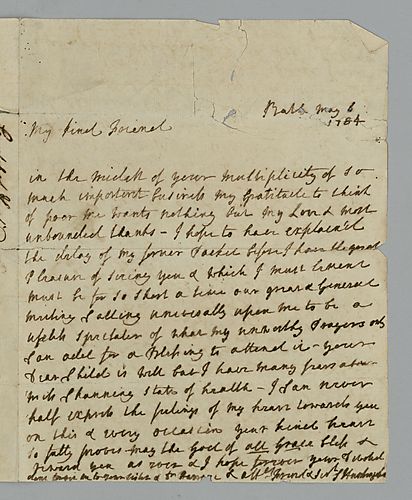 Bath May 6
1784
My Kind Friend
in the midst of your multiplicity of so
much important business my Gratitude to think
of poor me wants nothing but my Love & most
unbounded thanks - I hope to have explain'd
the delay of my former Packet before I have the great
Pleasure of seeing you & which I must lament
must be for so short a time our great General
meeting calling universally upon me to be a
useless spectator of what my unworthy Prayers only
can add for a Blessing to attend it - your
Dear Child is well but I have many fears about
state of health - I can never
half express the feelings of my heart towards you
on this & every occasion your kind heart
so fully proves may the God of all Grace bless &
reward you as ever & I hope forever your
&